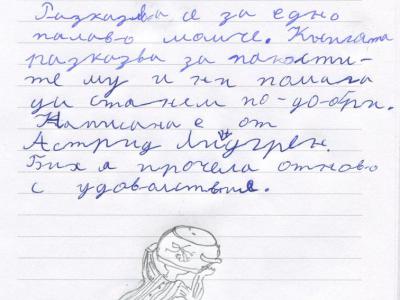 Разказва се за едно
палаво момче. Книгата
разказва за пакости-
те му и ни помага
да станем по-добри.
Написана е от
Астрид Линдгрен.
Бих я прочела отново
с удоволствие.